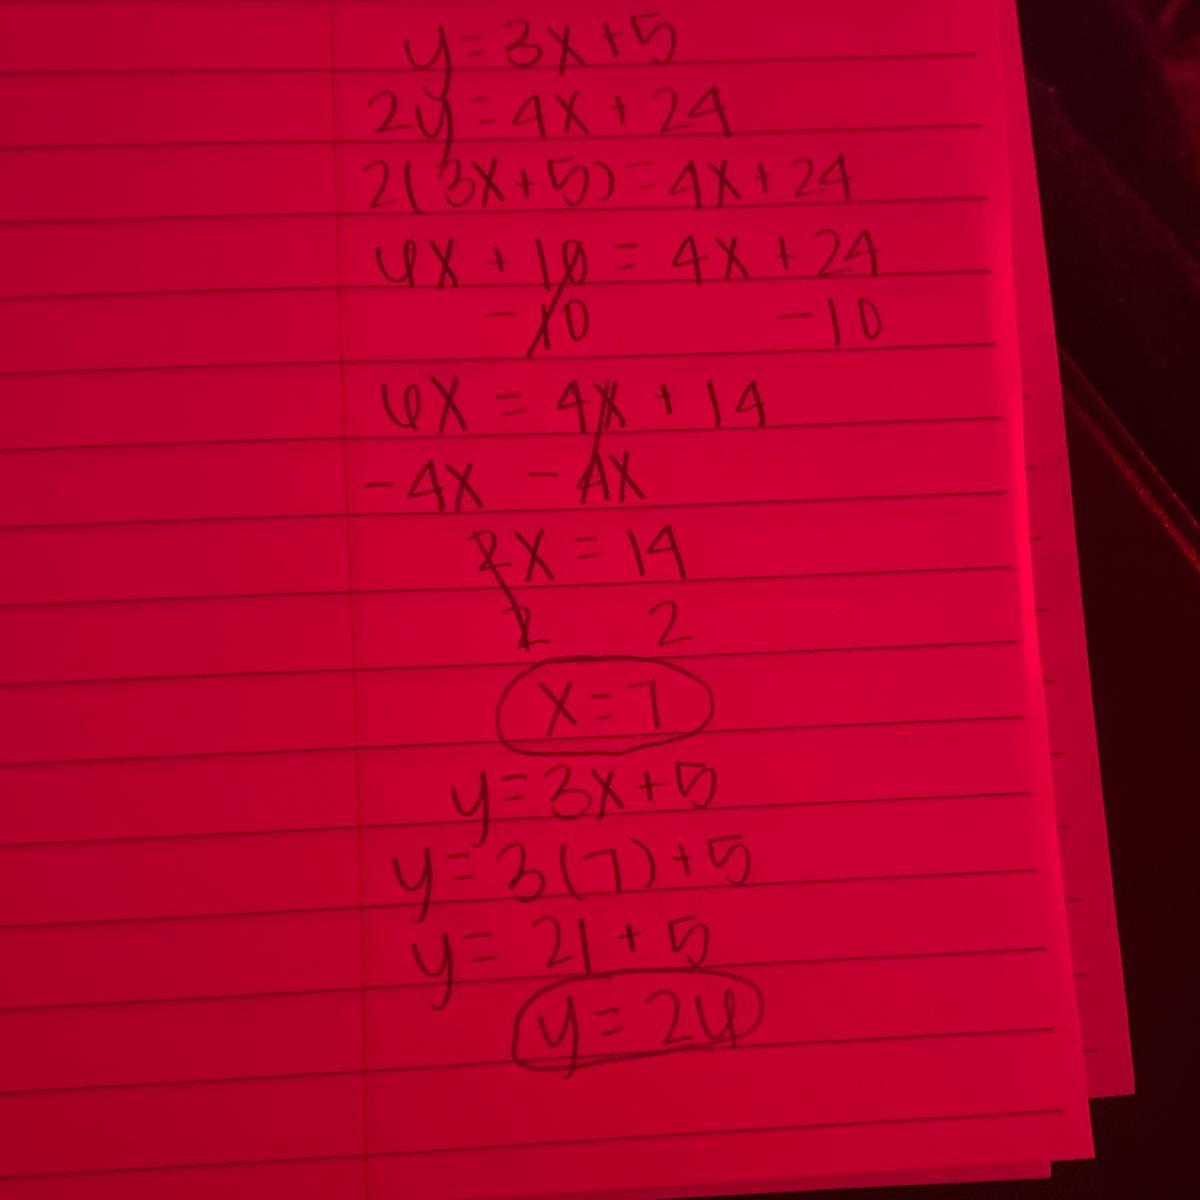 y = 3x + 5
2y = 4x + 24
2(3x + 5) = 4x + 24
6x + 10 = 4x + 24
- 10 - 10
6x = 4x + 14
- 4x - 4x
2x = 14
2 2
x = 7
y = 3x + 5
y = 3(7) + 5
y = 21 + 5
y = 26